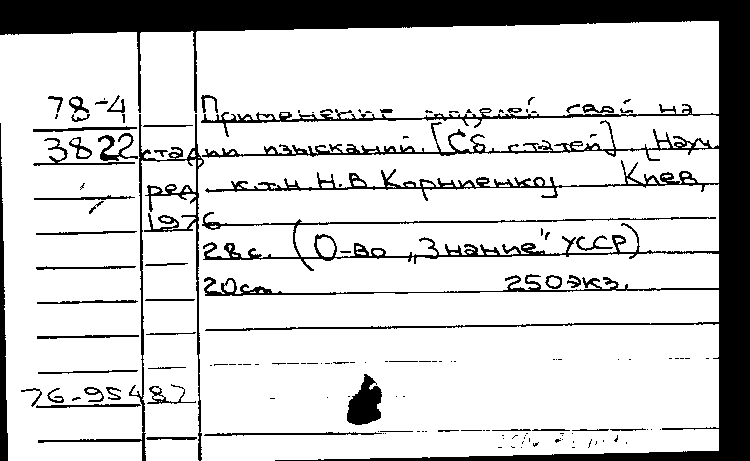 78-4 Применение моделей свай на
3822 стадии изысканий. [Сб. статей]. [Науч.
ред. к.т.н. Н.В. Корниенко]. Киев,
1976
28 с. (О-во „Знание" УССР)
20 см. 250 экз.
76-95487